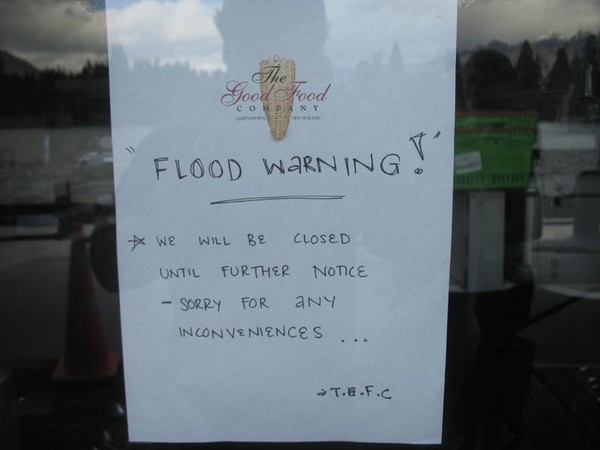 The
Good Food
COMPANY
" FLOOD WaRNING! "
WE WILL BE CLOSED
UNTIL FURTHER NOTICE
- SORRY FOR aNY
INCONVENIENCES ...
→T.G.F.C